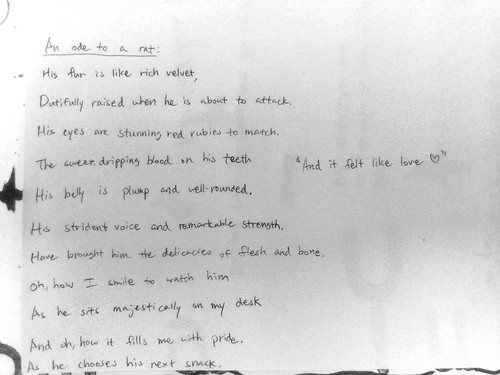 An ode to a rat:
His fur is like rich velvet,
Dutifully raised when he is about to attack.
His eyes are stunning red rubies to match.
The sweet, dripping blood on his teeth
"And it felt like love ♡"
His belly is plump and well-rounded.
His strident voice and remarkable strength,
Have brought him the delicacies of flesh and bone.
Oh, how I smile to watch him
As he sits majestically on my desk
And oh, how it fills me with pride.
As he chooses his next snack.